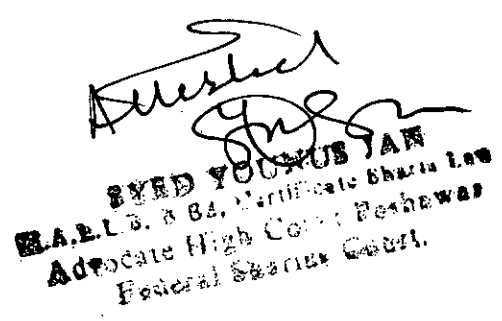 Attested
SYED YOUNUS JAN
M.A.L.L.B. B Ed, Certificate Sharia Law
Advocate High Court Peshawar
Federal Shariat Court.